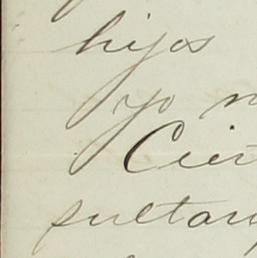 hijos
yo n
Cier
sultan